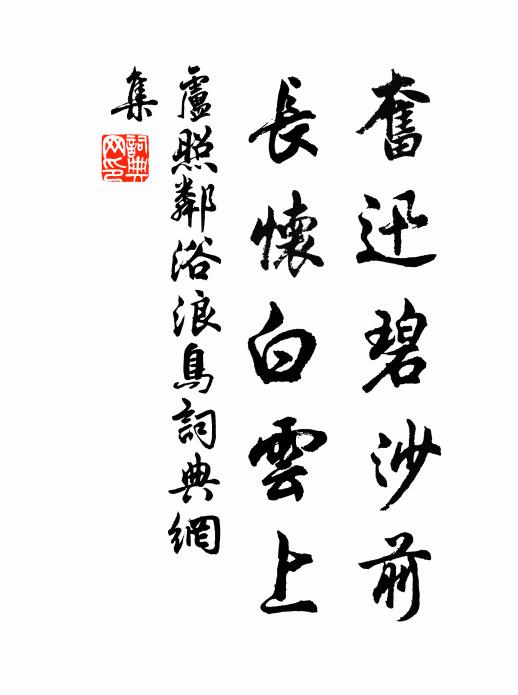 奮迅碧沙前
長懷白雲上
盧照鄰浴浪鳥詞典網
集
詞典
网印